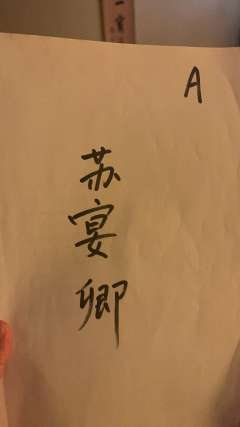 A
苏宴卿